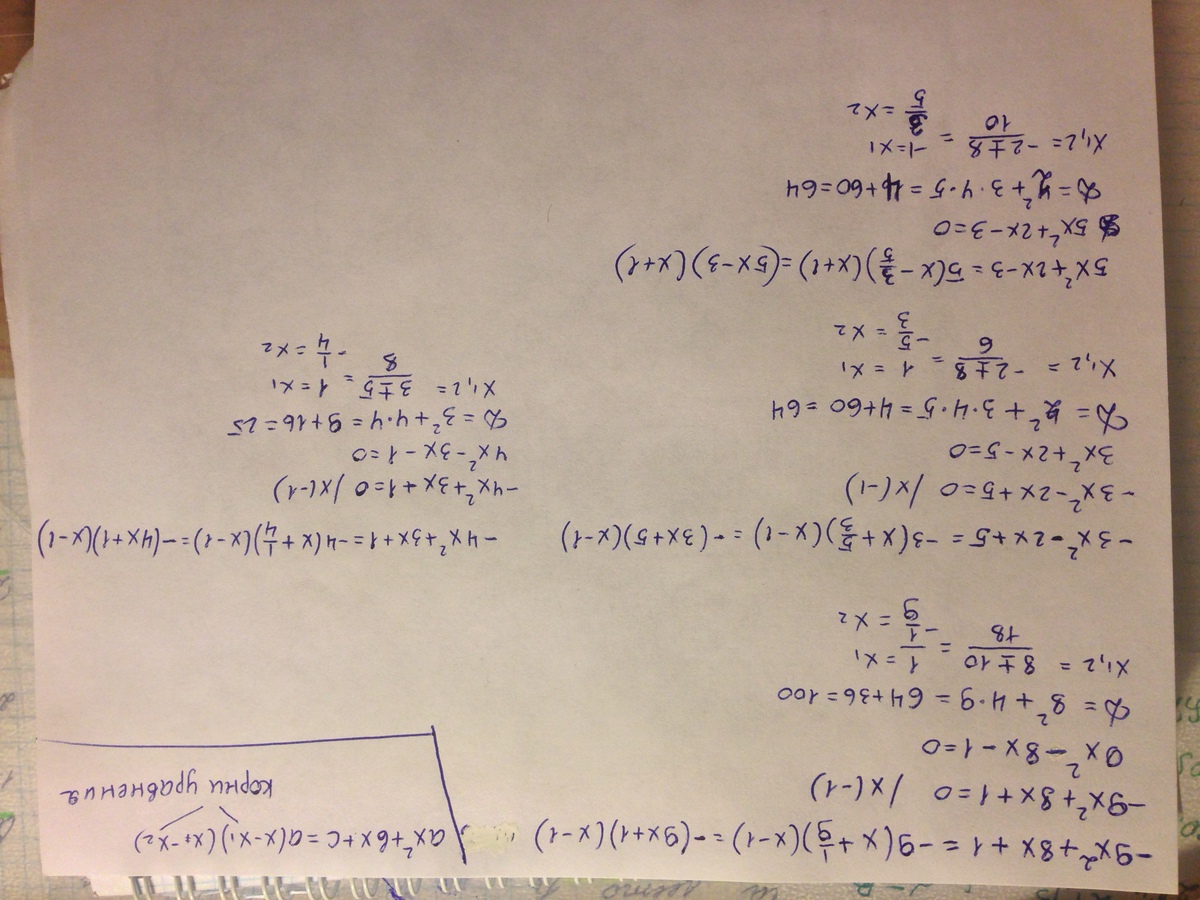 -9x²+8x+1 = -9(x+1/9)(x-1) = -(9x+1)(x-1)
ax²+bx+c=a(x-x₁)(x-x₂)
корни уравнения
-9x²+8x+1=0 /x(-1)
9x²-8x-1=0
D = 8²+4·9 = 64+36=100
x₁,₂ = 8±10/18 = 1=x₁
-1/9 = x₂
-3x²-2x+5 = -3(x+5/3)(x-1) = -(3x+5)(x-1)
-3x²-2x+5=0 /x(-1)
3x²+2x-5=0
D= 2²+3·4·5=4+60=64
x₁,₂ = -2±8/6 = 1 = x₁
-5/3 = x₂
-4x²+3x+1=-4(x+1/4)(x-1)=-(4x+1)(x-1)
-4x²+3x+1=0 /x(-1)
4x²-3x-1=0
D=3²+4·4=9+16=25
x₁,₂= 3±5/8 = 1=x₁
-1/4 =x₂
5x²+2x-3 = 5(x-3/5)(x+1)=(5x-3)(x+1)
5x²+2x-3=0
D=2²+3·4·5=4+60=64
x₁,₂= -2±8/10 = -1=x₁
3/5 =x₂